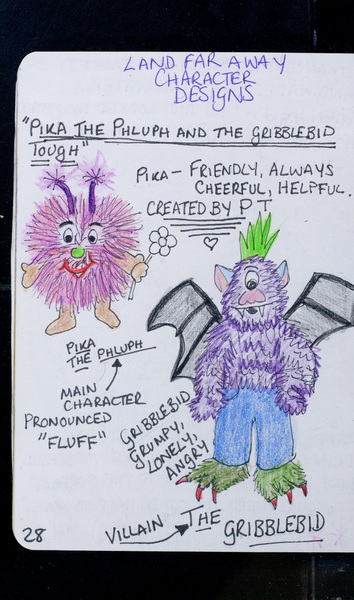 LAND FAR AWAY
CHARACTER
DESIGNS
"PIKA THE PHLUPH AND THE GRIBBLEBID
TOUGH"
PIKA – FRIENDLY, ALWAYS
CHEERFUL, HELPFUL.
CREATED BY P T
PIKA
THE PHLUPH
MAIN
CHARACTER
PRONOUNCED
"FLUFF"
GRIBBLEBID
GRUMPY,
LONELY,
ANGRY
VILLAIN
THE
GRIBBLEBID
28